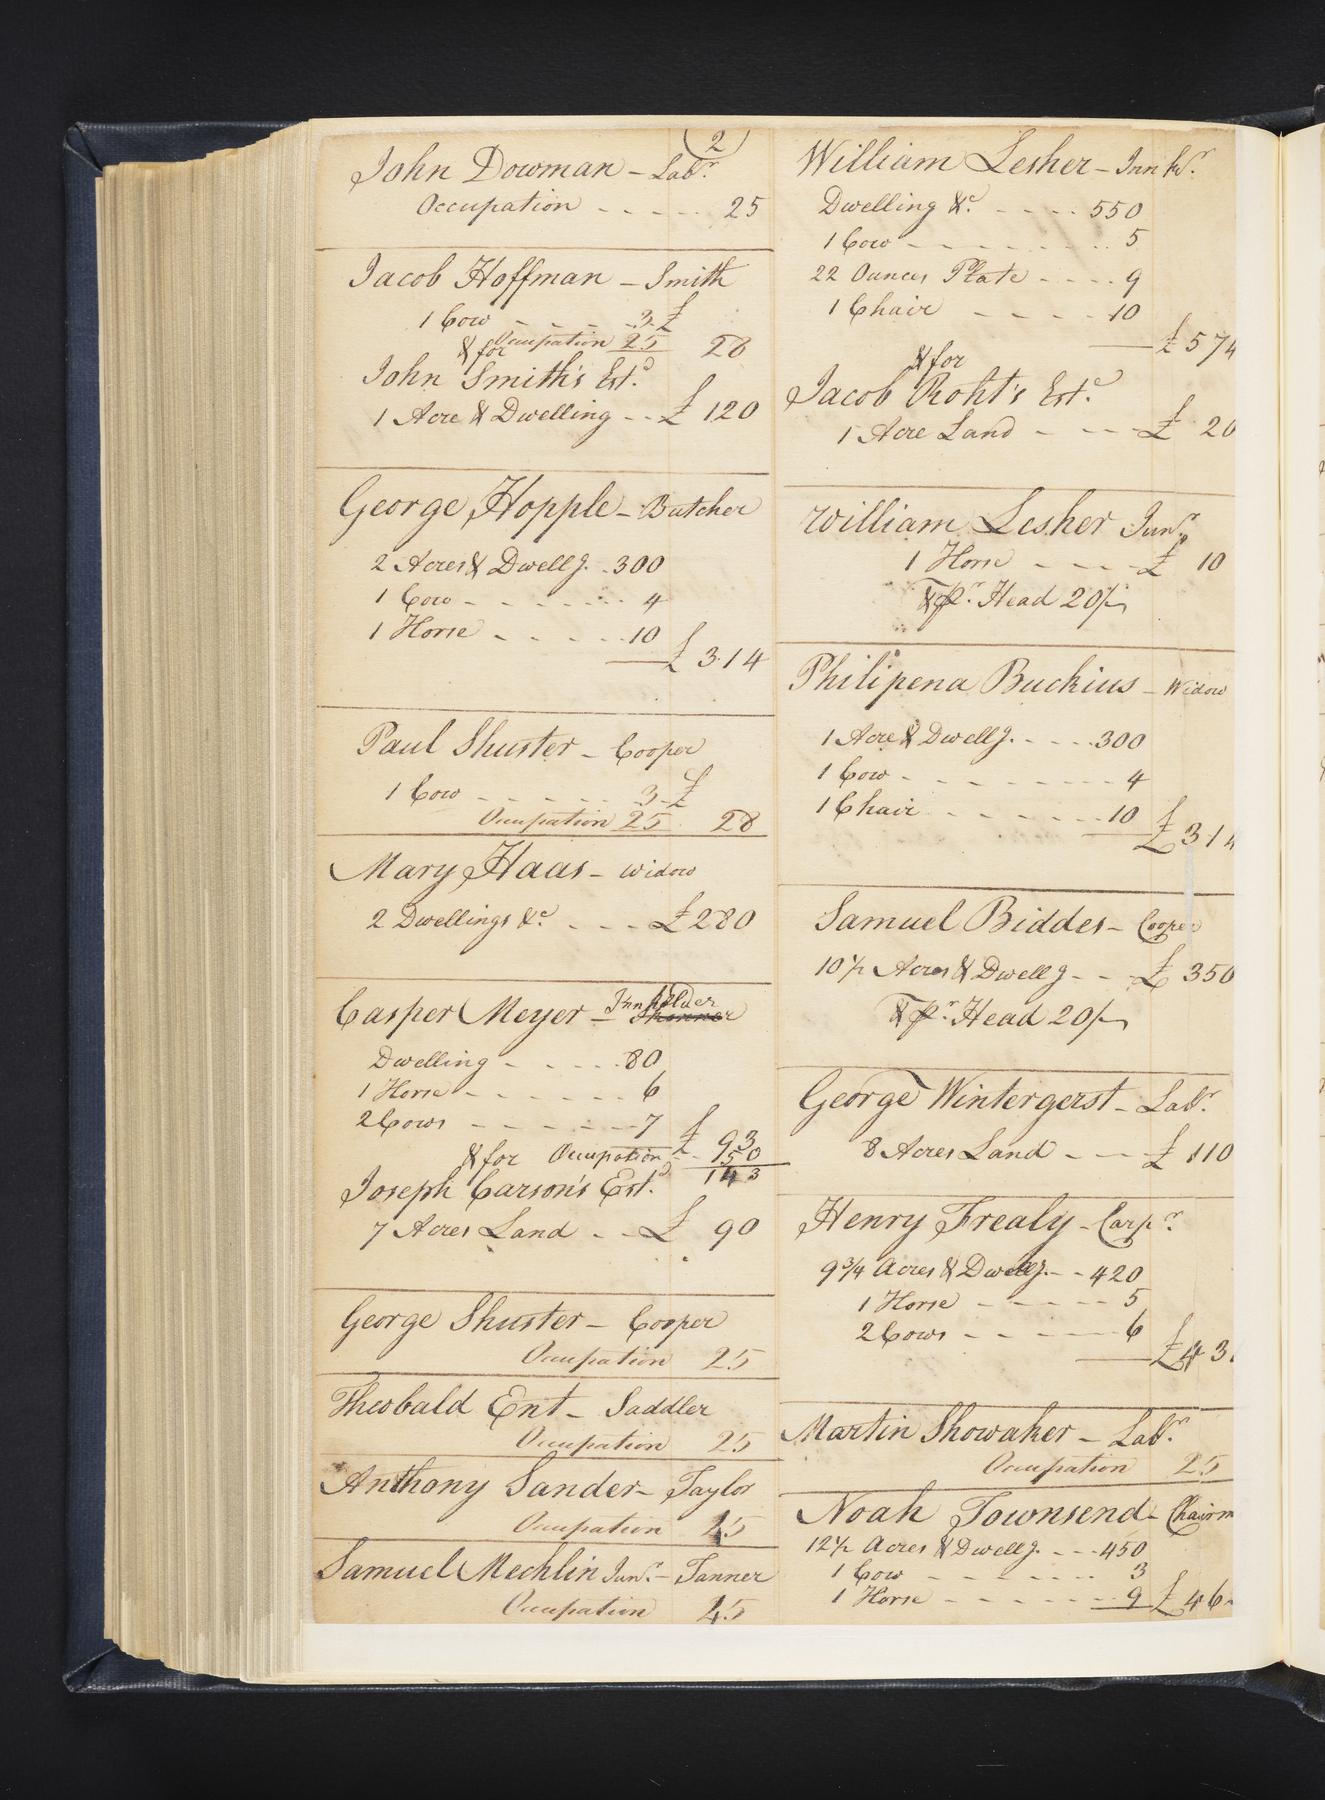 2
John Dowman - Labr.
Occupation - - - - - 25
Jacob Hoffman - Smith
1 Cow - - - - 3 £
Occupation 25 28
& for
John Smith's Estd.
1 Acre & Dwelling - - £ 120
George Hopple - Butcher
2 Acres & Dwellg. - 300
1 Cow - - - - - - - 4
1 Horse - - - - - 10
£ 314
Paul Shuster - Cooper
1 Cow - - - - - 3 - £
Occupation 25 28
Mary Haas - Widow
2 Dwellings &c. - - - £ 280
Innholder
Casper Meyer - Skinner
Dwelling - - - - - 80
1 Horse - - - - - - 6
2 Cows - - - - - - 7
£ 93
& for Occupation - - 50
143
Joseph Carson's Estd.
7 Acres Land - - £ 90
George Shuster - Cooper
Occupation 25
Theobald Ent - Saddler
Occupation 25
Anthony Sander - Taylor
Occupation 25
Samuel Mechlin Junr. - Tanner
Occupation 25
William Lesher - Inn kr.
Dwelling &c. - - - - 550
1 Cow - - - - - - - 5
22 Ounces Plate - - - - 9
1 Chair - - - - - 10
£ 574
& for
Jacob Roht's Estd.
1 Acre Land - - - - £ 20
William Lesher Junr.
1 Horse - - - - £ 10
& pr. Head 20/-
Philipena Buckius - Widow
1 Acre & Dwellg. - - - - 300
1 Cow - - - - - - - 4
1 Chair - - - - - - 10
£ 314
Samuel Biddes - Cooper
10 1/2 Acres & Dwellg - - - £ 350
& pr. Head 20/-
George Wintergerst - Labr.
8 Acres Land - - - £ 110
Henry Frealy - Carpr.
9 3/4 Acres & Dwellg. - - 420
1 Horse - - - - - 5
2 Cows - - - - - 6
£ 43
Martin Showaker - Labr.
Occupation 25
Noah Townsend - Chairm
12 1/2 Acres & Dwellg. - - - 450
1 Cow - - - - - - - 3
1 Horse - - - - - - - 9 £ 46